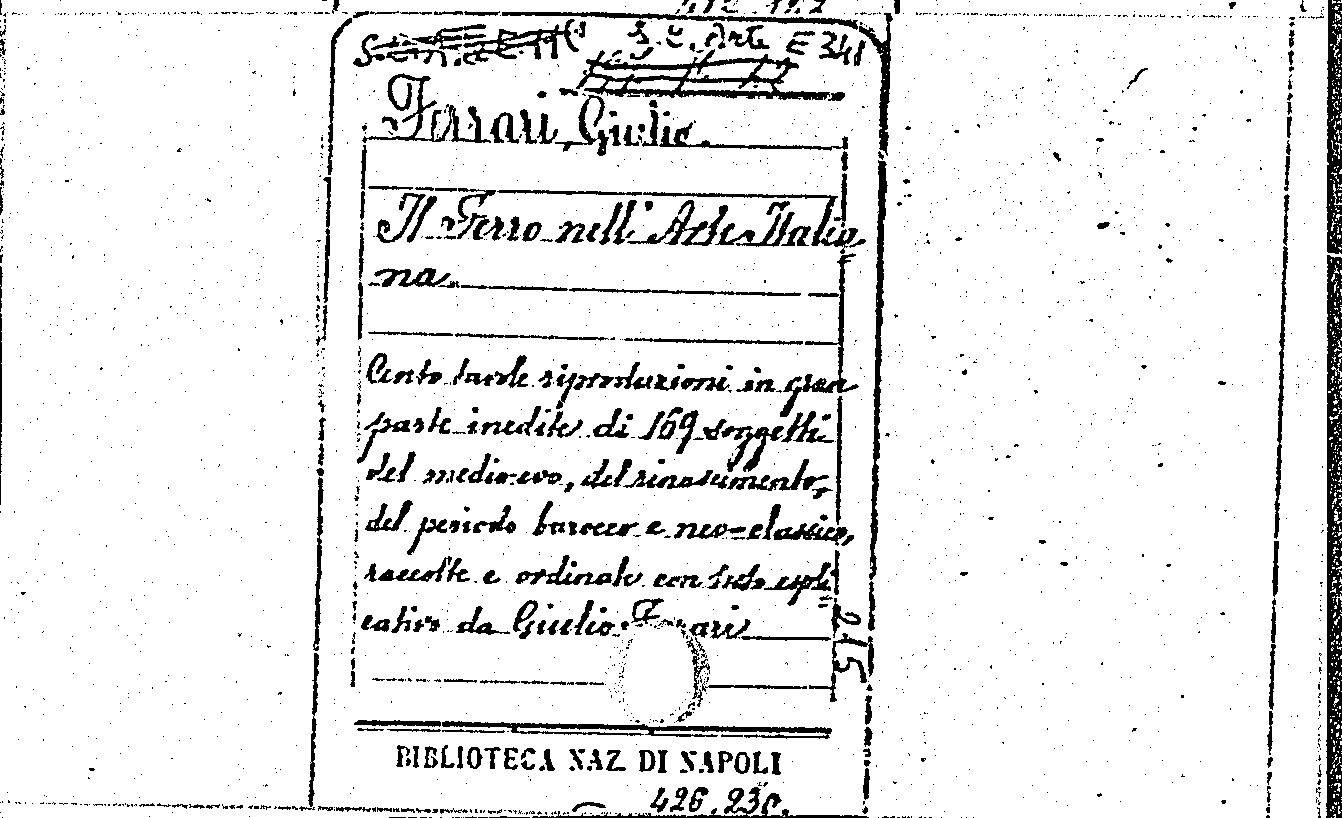 S. C. Arte E 348
Ferrari, Giulio.
Il Ferro nell' Arte Italia=
na.
Cento tavole riproduzioni in gran
parte inedite di 169 soggetti
del medio-evo, del rinascimento,
del periodo barocco e neo-classico,
raccolte e ordinate con testo espli=
cativo da Giulio Ferrari
215
BIBLIOTECA NAZ. DI NAPOLI
426.230.